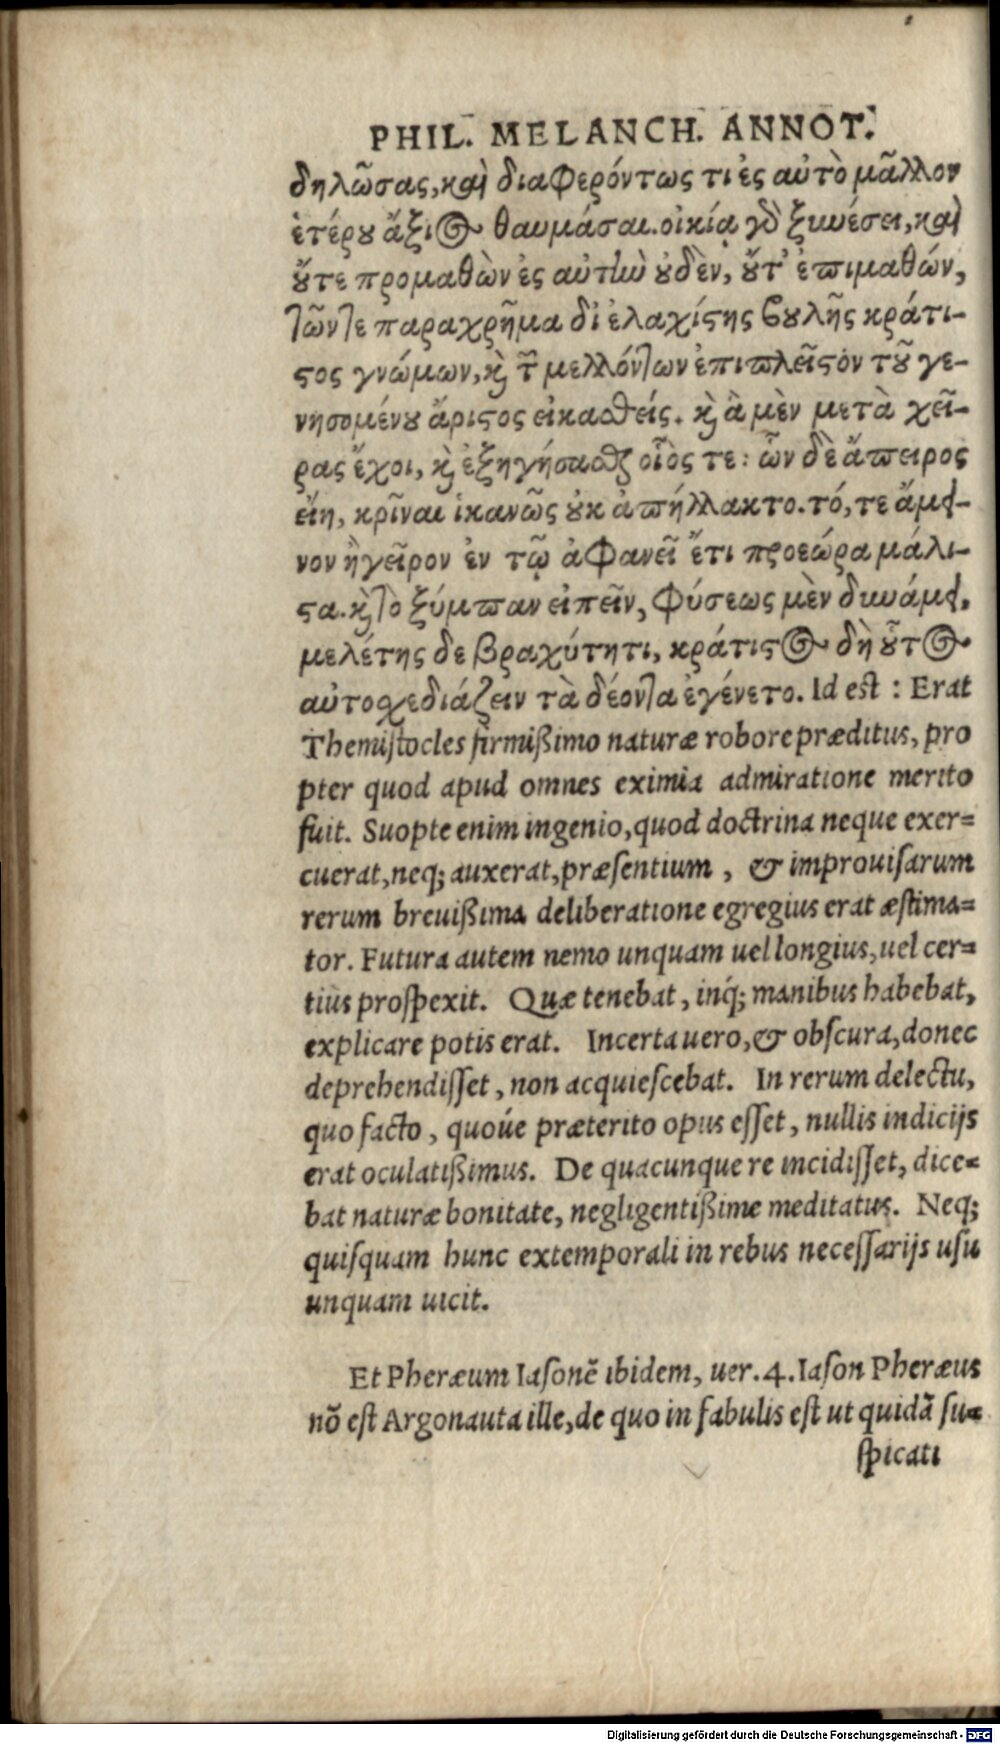 PHIL. MELANCH. ANNOT.
δηλῶσας, καὶ διαφερόντως τι ἐς αὐτὸ μᾶλλον
ἑτέρου ἄξιος θαυμάσαι. οἰκίᾳ γὸ ξυνέσει, καὶ
οὔτε προμαθὼν ἐς αὐτὴν οὐδὲν, οὔτ' ἐπιμαθών,
τῶν τε παραχρῆμα δι' ἐλαχίστης βουλῆς κράτι-
στος γνώμων, καὶ τῶν μελλόντων ἐπιπλεῖστον τοῦ γε-
νησομένου ἄριστος εἰκασθείς. καὶ ἃ μὲν μετὰ χεῖ-
ρας ἔχοι, καὶ ἐξηγήσασθαι οἷός τε: ὧν δὲ ἄπειρος
εἴη, κρῖναι ἱκανῶς οὐκ ἀπήλλακτο. τό, τε ἄμει-
νον ἢ χεῖρον ἐν τῷ ἀφανεῖ ἔτι προεώρα μάλι-
στα. καὶ τὸ ξύμπαν εἰπεῖν, φύσεως μὲν δυνάμει,
μελέτης δε βραχύτητι, κράτιστος δὴ οὗτος
αὐτοσχεδιάζειν τὰ δέοντα ἐγένετο. Id est : Erat
Themistocles firmißimo naturæ robore præditus, pro
pter quod apud omnes eximia admiratione merito
fuit. Suopte enim ingenio, quod doctrina neque exer=
cuerat, neq; auxerat, præsentium , & improuisarum
rerum breuißima deliberatione egregius erat æstima=
tor. Futura autem nemo unquam uel longius, uel cer=
tius prospexit. Quæ tenebat, inq́; manibus habebat,
explicare potis erat. Incerta uero, & obscura, donec
deprehendisset, non acquiescebat. In rerum delectu,
quo facto, quoúe præterito opus esset, nullis indicijs
erat oculatißimus. De quacunque re incidisset, dice=
bat naturæ bonitate, negligentißime meditatus. Neq;
quisquam hunc extemporali in rebus necessarijs usu
unquam uicit.
Et Pheræum Iasonē ibidem, uer. 4. Iason Pheræus
nō est Argonauta ille, de quo in fabulis est ut quidā su=
spicati
Digitalisierung gefördert durch die Deutsche Forschungsgemeinschaft - DFG